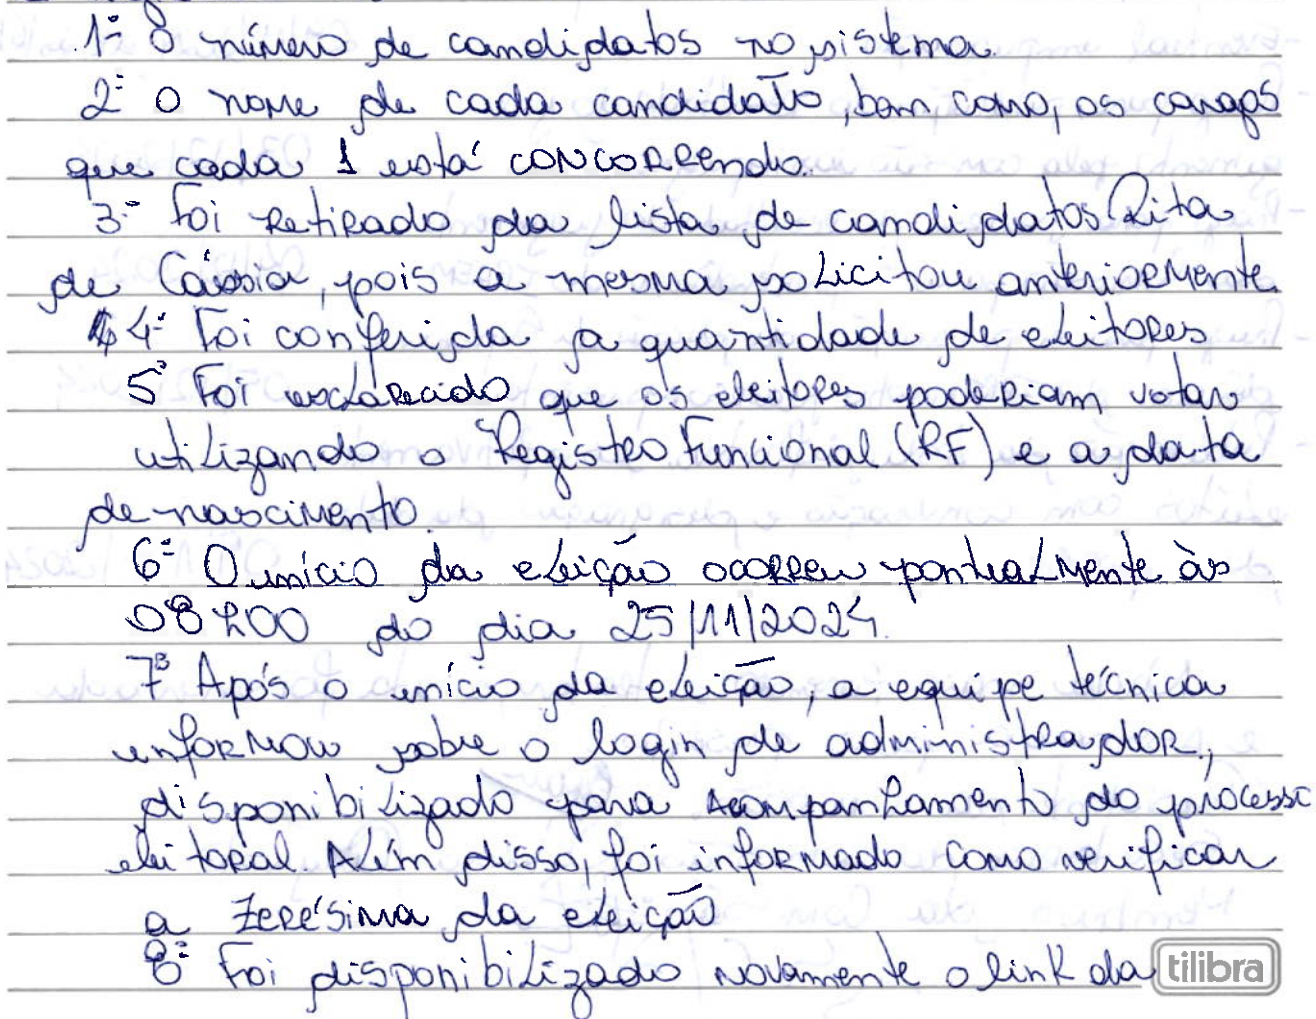 1º O número de candidatos no sistema.
2º O nome de cada candidato, bem como, os cargos
que cada 1 está concorrendo.
3º Foi retirado da lista de candidatos Rita
de Cássia, pois a mesma solicitou anteriormente.
4º Foi conferida a quantidade de eleitores
5º Foi esclarecido que os eleitores poderiam votar
utilizando o Registro Funcional (RF) e a data
de nascimento.
6º O início da eleição ocorreu pontualmente às
08h00 do dia 25/11/2024.
7º Após o início da eleição, a equipe técnica
informou sobre o login de administrador,
disponibilizado para acompanhamento do processo
eleitoral. Além disso, foi informado como verificar
a zerésima da eleição
8º Foi disponibilizado novamente o link da
tilibra